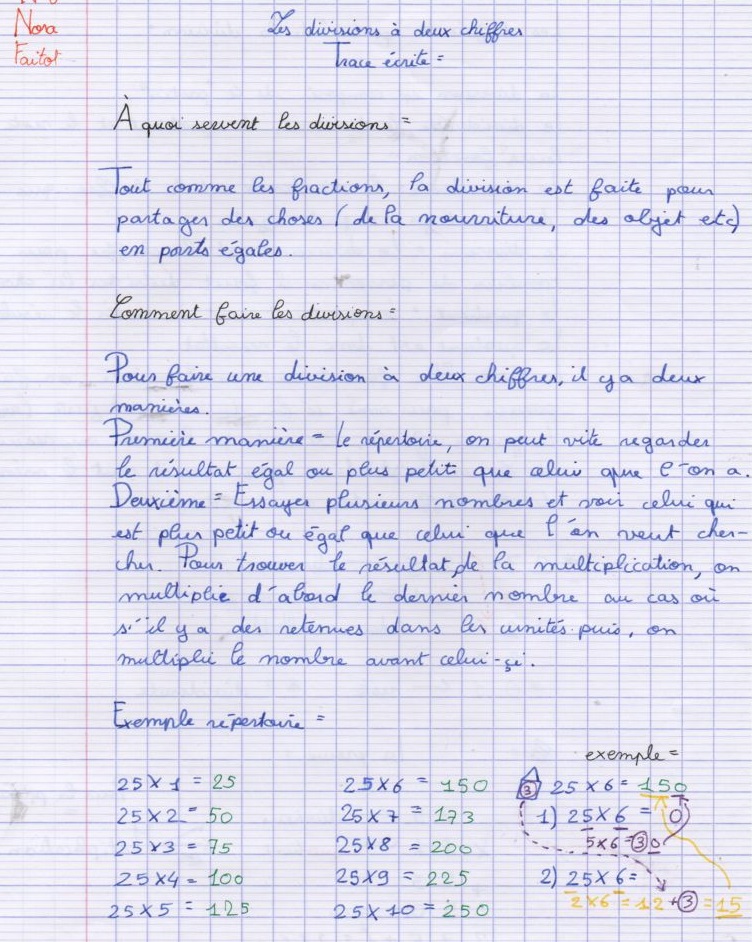 Nora
Faitot
Les divisions à deux chiffres
Trace écrite =
À quoi servent les divisions =
Tout comme les fractions, la division est faite pour
partager des choses (de la nourriture, des objet etc)
en parts égales.
Comment faire les divisions =
Pour faire une division à deux chiffres, il y a deux
manières.
Première manière = Le répertoire, on peut vite regarder
le résultat égal ou plus petit que celui que l'on a.
Deuxième = Essayer plusieurs nombres et voir celui qui
est plus petit ou égal que celui que l'on veut cher-
cher. Pour trouver le résultat de la multiplication, on
multiplie d'abord le dernier nombre au cas où
s'il y a des retenues dans les unités puis, on
multiplie le nombre avant celui-çi.
Exemple répertoire =
25 x 1 = 25
25 x 2 = 50
25 x 3 = 75
25 x 4 = 100
25 x 5 = 125
25 x 6 = 150
25 x 7 = 173
25 x 8 = 200
25 x 9 = 225
25 x 10 = 250
exemple =
3 25 x 6 = 150
1) 25 x 6 = 0
5 x 6 = 30
2) 25 x 6 =
2 x 6 = 12 + 3 = 15